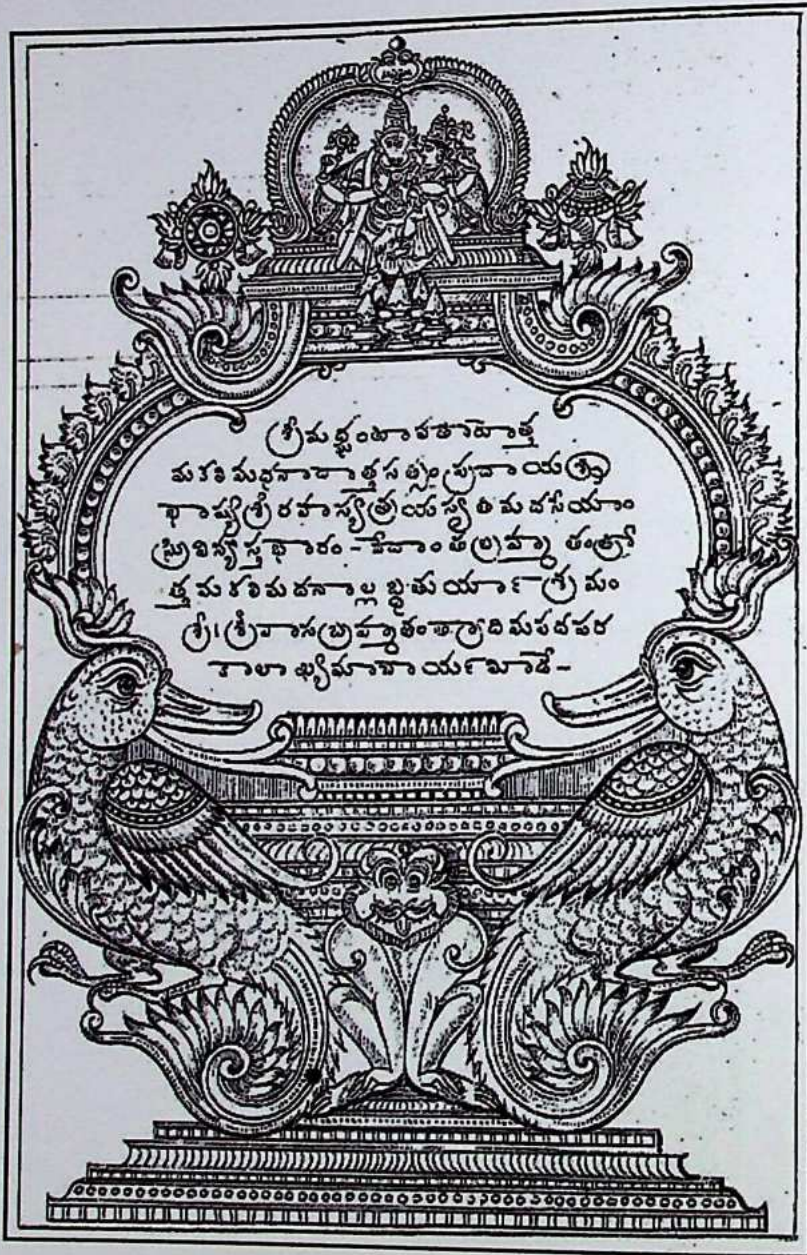 శ్రీమద్ఘంటావతారాత్త
మకలిమథనాదాత్తసత్సంప్రదాయశ్రీ
భాష్యశ్రీరహస్యత్రయస్వతిమదసీయాం
ఘ్రివిన్యస్తభారం - వేదాంతబ్రహ్మతంత్రో
త్తమకలిమదనాల్లబ్ధతుర్యాశ్రమం
శ్రీ। శ్రీవాసబ్రహ్మతంత్రాదిమపదపర
కాలాఖ్యమాచార్యమీడే-